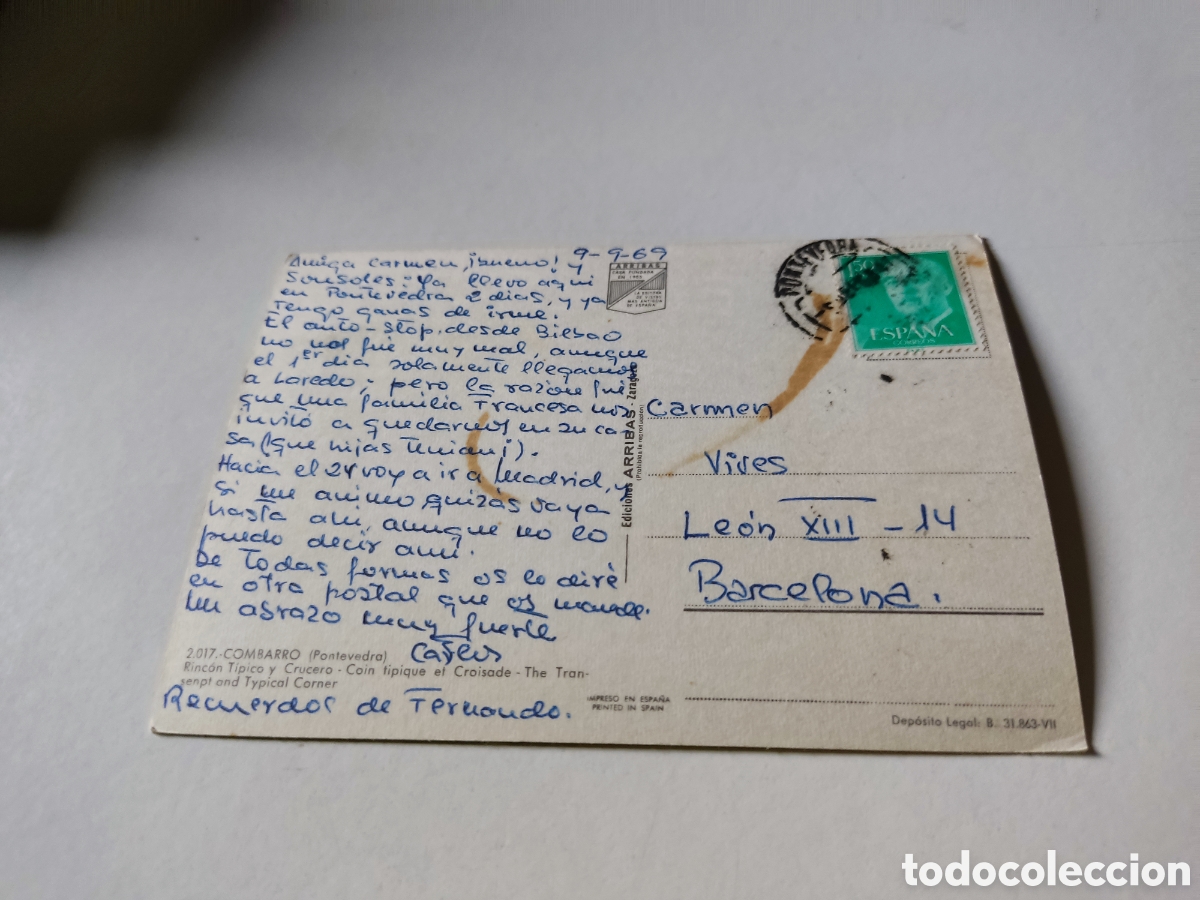 9-9-69
Amiga Carmen, ¡bueno! y
Sonsoles: Ya llevo aquí
en Pontevedra 2 días, y ya
tengo ganas de irme.
El auto-stop, desde Bilbao
no nos fue muy mal, aunque
el 1er día solamente llegamos
a Laredo, pero la razón fue
que una familia francesa nos
invitó a quedarnos en su ca-
sa (que hijas tenían!).
Hacia el 24 voy a ir a Madrid, y
si me animo quizás vaya
hasta ahí, aunque no lo
puedo decir aun.
De todas formas os lo diré
en otra postal que os mande.
Un abrazo muy fuerte
Carlos
Recuerdos de Fernando.
2.017.-COMBARRO (Pontevedra)
Rincón Típico y Crucero - Coin tipique et Croisade - The Tran-
senpt and Typical Corner
ARRIBAS
CASA FUNDADA
EN 1905
LA EDITORA
DE VISTAS
MAS ANTIGUA
DE ESPAÑA
Ediciones ARRIBAS - Zaragoza
(Prohibida la reproducción)
IMPRESO EN ESPAÑA
PRINTED IN SPAIN
PONTEVEDRA
ESPAÑA
CORREOS
Carmen
Vives
León XIII - 14
Barcelona.
Depósito Legal: B. 31.863-VII
todocoleccion